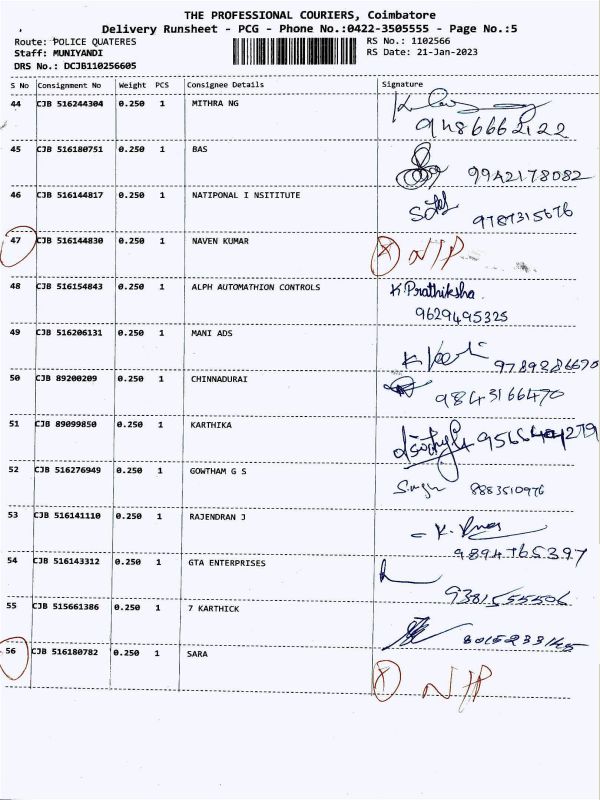 THE PROFESSIONAL COURIERS, Coimbatore
Delivery Runsheet - PCG - Phone No.:0422-3505555 - Page No.:5
Route: POLICE QUATERES RS No.: 1102566
Staff: MUNIYANDI RS Date: 21-Jan-2023
DRS No.: DCJB110256605
S No Consignment No Weight PCS Consignee Details Signature
44 CJB 516244304 0.250 1 MITHRA NG
9486662122
45 CJB 516180751 0.250 1 BAS 9942178082
46 CJB 516144817 0.250 1 NATIPONAL I NSITITUTE 9787315676
47 CJB 516144830 0.250 1 NAVEN KUMAR X N/P
48 CJB 516154843 0.250 1 ALPH AUTOMATHION CONTROLS K.Prathiksha.
9629495325
49 CJB 516206131 0.250 1 MANI ADS
9789386670
50 CJB 89200209 0.250 1 CHINNADURAI 9843166470
51 CJB 89099850 0.250 1 KARTHIKA
52 CJB 516276949 0.250 1 GOWTHAM G S 8883510976
53 CJB 516141110 0.250 1 RAJENDRAN J
9894765397
54 CJB 516143312 0.250 1 GTA ENTERPRISES
9381555506
55 CJB 515661386 0.250 1 7 KARTHICK
56 CJB 516180782 0.250 1 SARA
X N/P